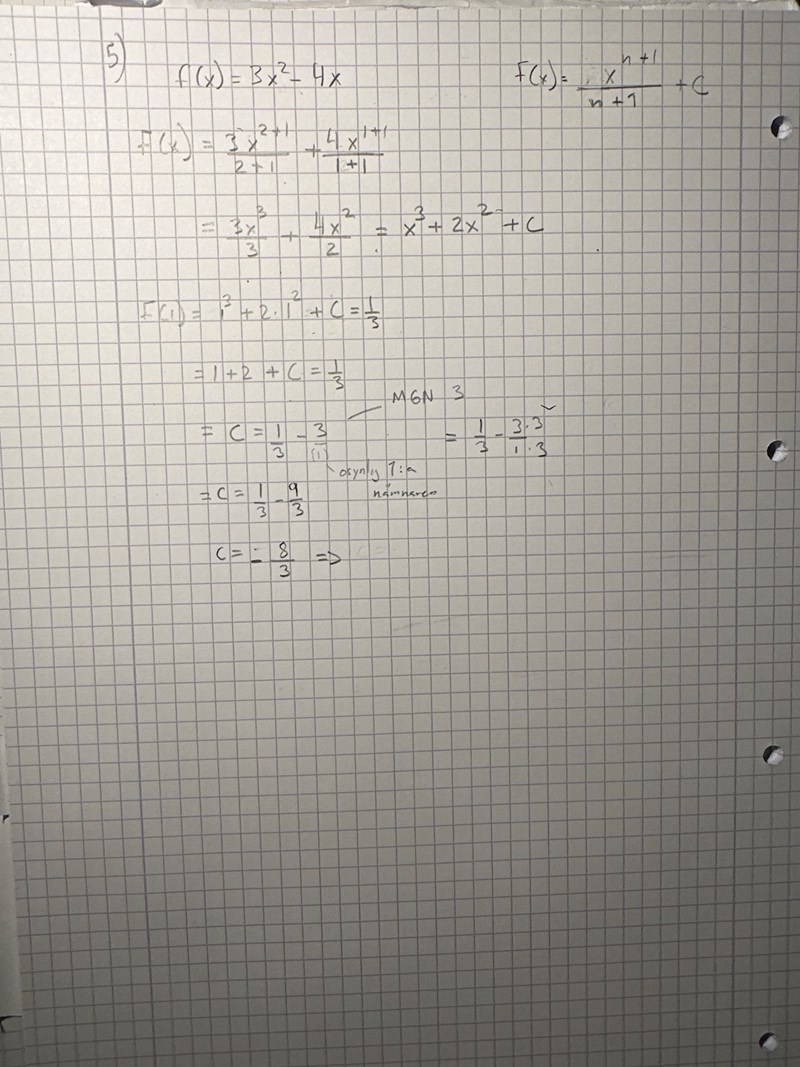 5)
f(x) = 3x² - 4x
F(x) = x^(n+1)/(n+1) + C
F(x) = 3x^(2+1)/(2+1) + 4x^(1+1)/(1+1)
= 3x³/3 + 4x²/2 = x³ + 2x² + C
F(1) = 1³ + 2·1² + C = 1/3
= 1+2 + C = 1/3
MGN 3
= C = 1/3 - 3/(1)
= 1/3 - 3·3/1·3
osynlig 1:a
nämnaren
= C = 1/3 - 9/3
C = - 8/3 =>